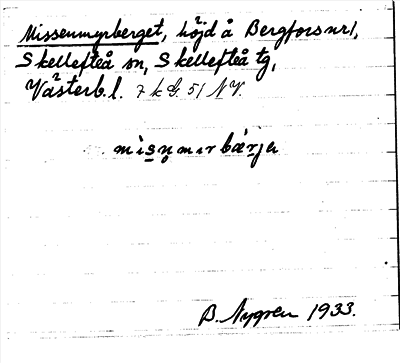 Missenmyrberget, höjd å Bergfors nr 1,
Skellefteå sn, Skellefteå tg,
Västerb. l. 7 k G. 51 NV.
misn̥mırbærja
B. Nygren 1933.